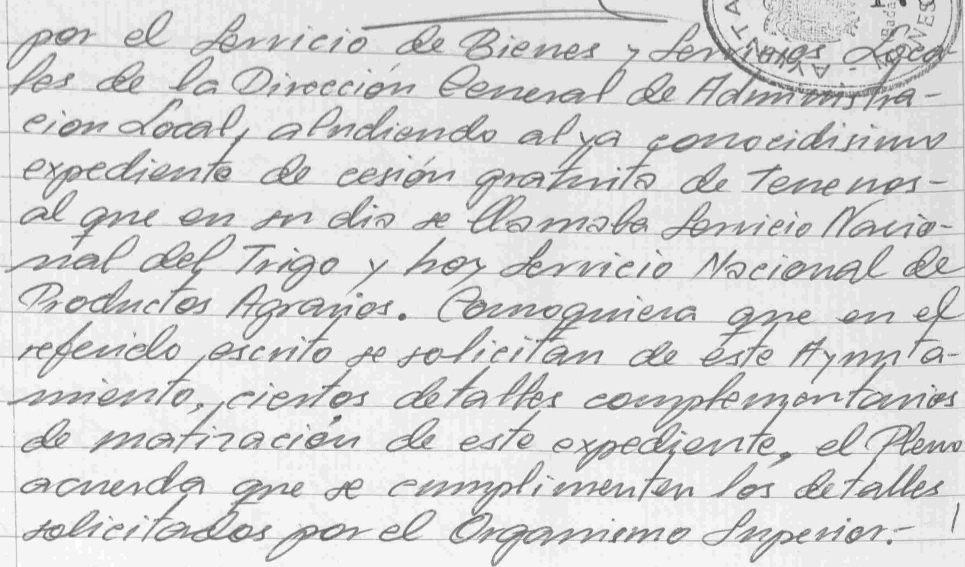 por el Servicio de Bienes y Servicios Loca
les de la Dirección General de Administra-
cion Local, aludiendo al ya conocidisimo
expediente de cesión gratuita de Terrenos-
al que en su dia se llamaba Servicio Nacio-
nal del Trigo y hoy Servicio Nacional de
Productos Agrarios. Comoquiera que en el
referido escrito se solicitan de este Ayunta-
miento, ciertos detalles complementarios
de matización de este expediente, el Pleno
acuerda que se cumplimenten los detalles
solicitados por el Organismo Superior.-